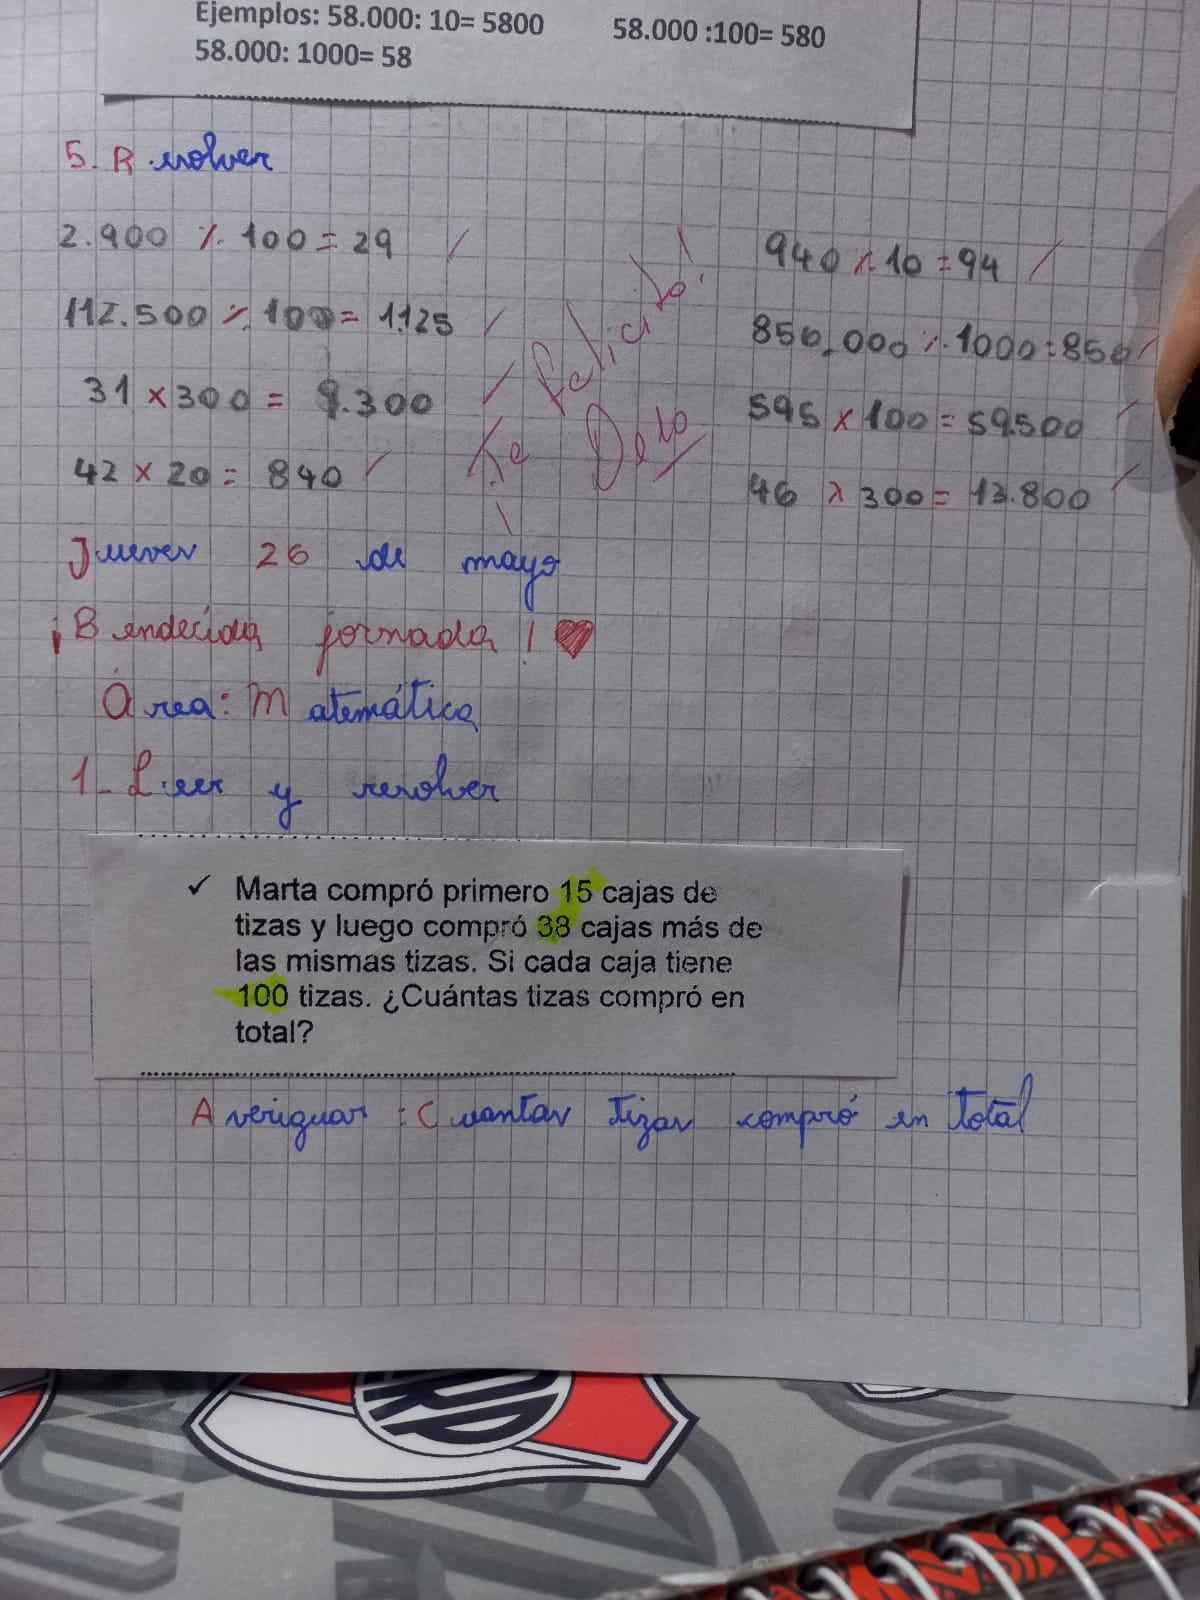 Ejemplos: 58.000: 10= 5800 58.000 :100= 580
58.000: 1000= 58
5. Resolver
2.900 ⁒ 100 = 29
940 ⁒ 10 = 94
112.500 ⁒ 100 = 1.125
850.000 ⁒ 1000 = 850
31 x 300 = 9.300
595 x 100 = 59.500
42 x 20 = 840
46 x 300 = 13.800
Te felicito!
Jueves 26 de mayo
¡Bendecida jornada!
Área: Matemática
1_ Leer y resolver
✓ Marta compró primero 15 cajas de
tizas y luego compró 38 cajas más de
las mismas tizas. Si cada caja tiene
100 tizas. ¿Cuántas tizas compró en
total?
Averiguar: Cuantas tizas compró en total